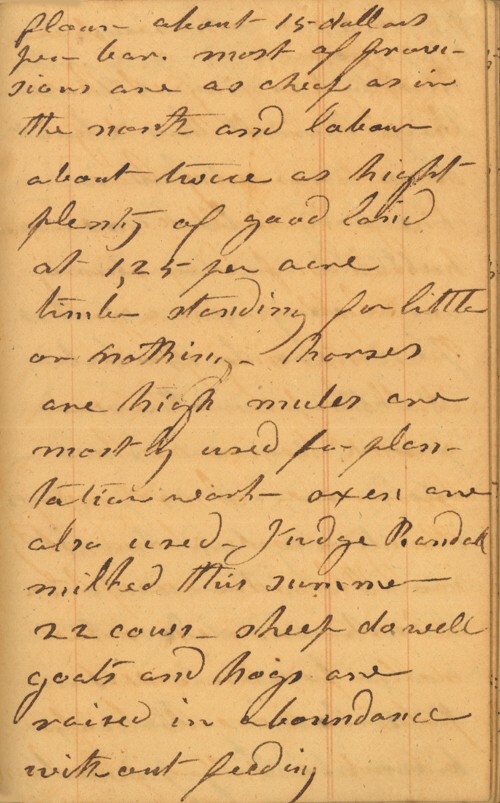 flour about 15 dollars
per bar. most of provi-
sions are as cheap as in
the north and labour
about twice as hight
plenty of good land
at 1,25 per acre
timber standing for little
or nothing - horses
are high mules are
mostly used for plan-
tation work - oxen are
also used - Judge Randall
milked this summer
22 cows - sheep do well
goats and hogs are
raised in aboundance
without feeding